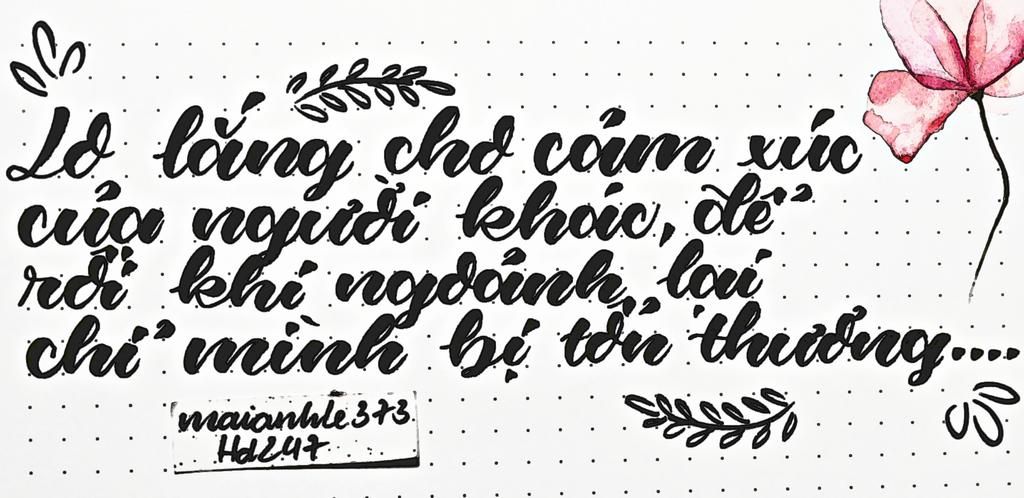 Lo lắng cho cảm xúc
của người khác, để
rồi khi ngoảnh lại
chỉ mình bị tổn thương....
maianhle373
Hd247